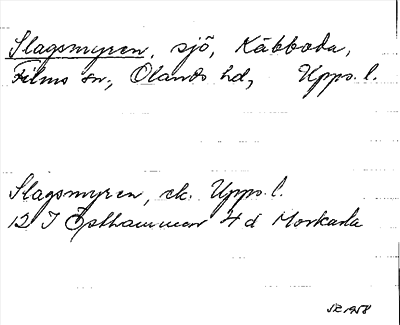 Slagsmyren, sjö, Käbboda,
Films sn, Olands hd, Upps. l.
Slagsmyren, ek. Upps. l.
12 I Östhammar 4 d Morkarla
1958